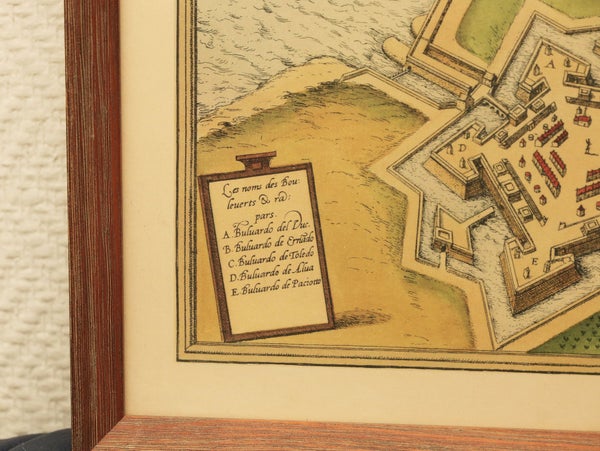 Les noms des Bou-
leuerts & rā:
pars.
A. Buluardo del Duc.
B. Buluardo de Ernādo
C. Buluardo de Toledo
D. Buluardo de Alua
E. Buluardo de Paciotto
A
D
E